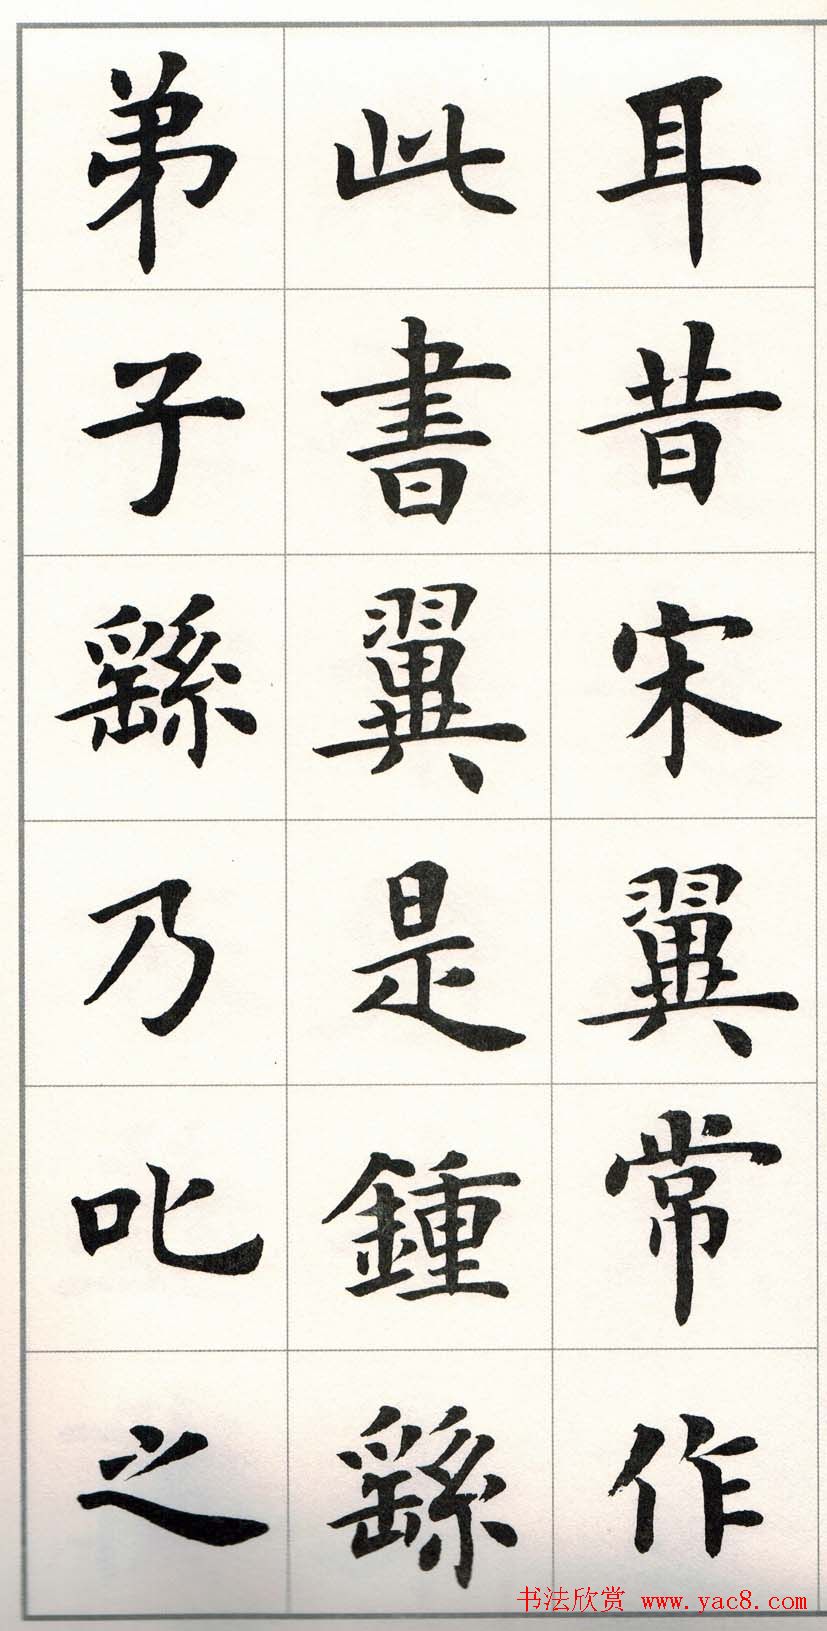 耳昔宋翼常作
此書翼是鍾繇
弟子繇乃叱之
书法欣赏 www.yac8.com